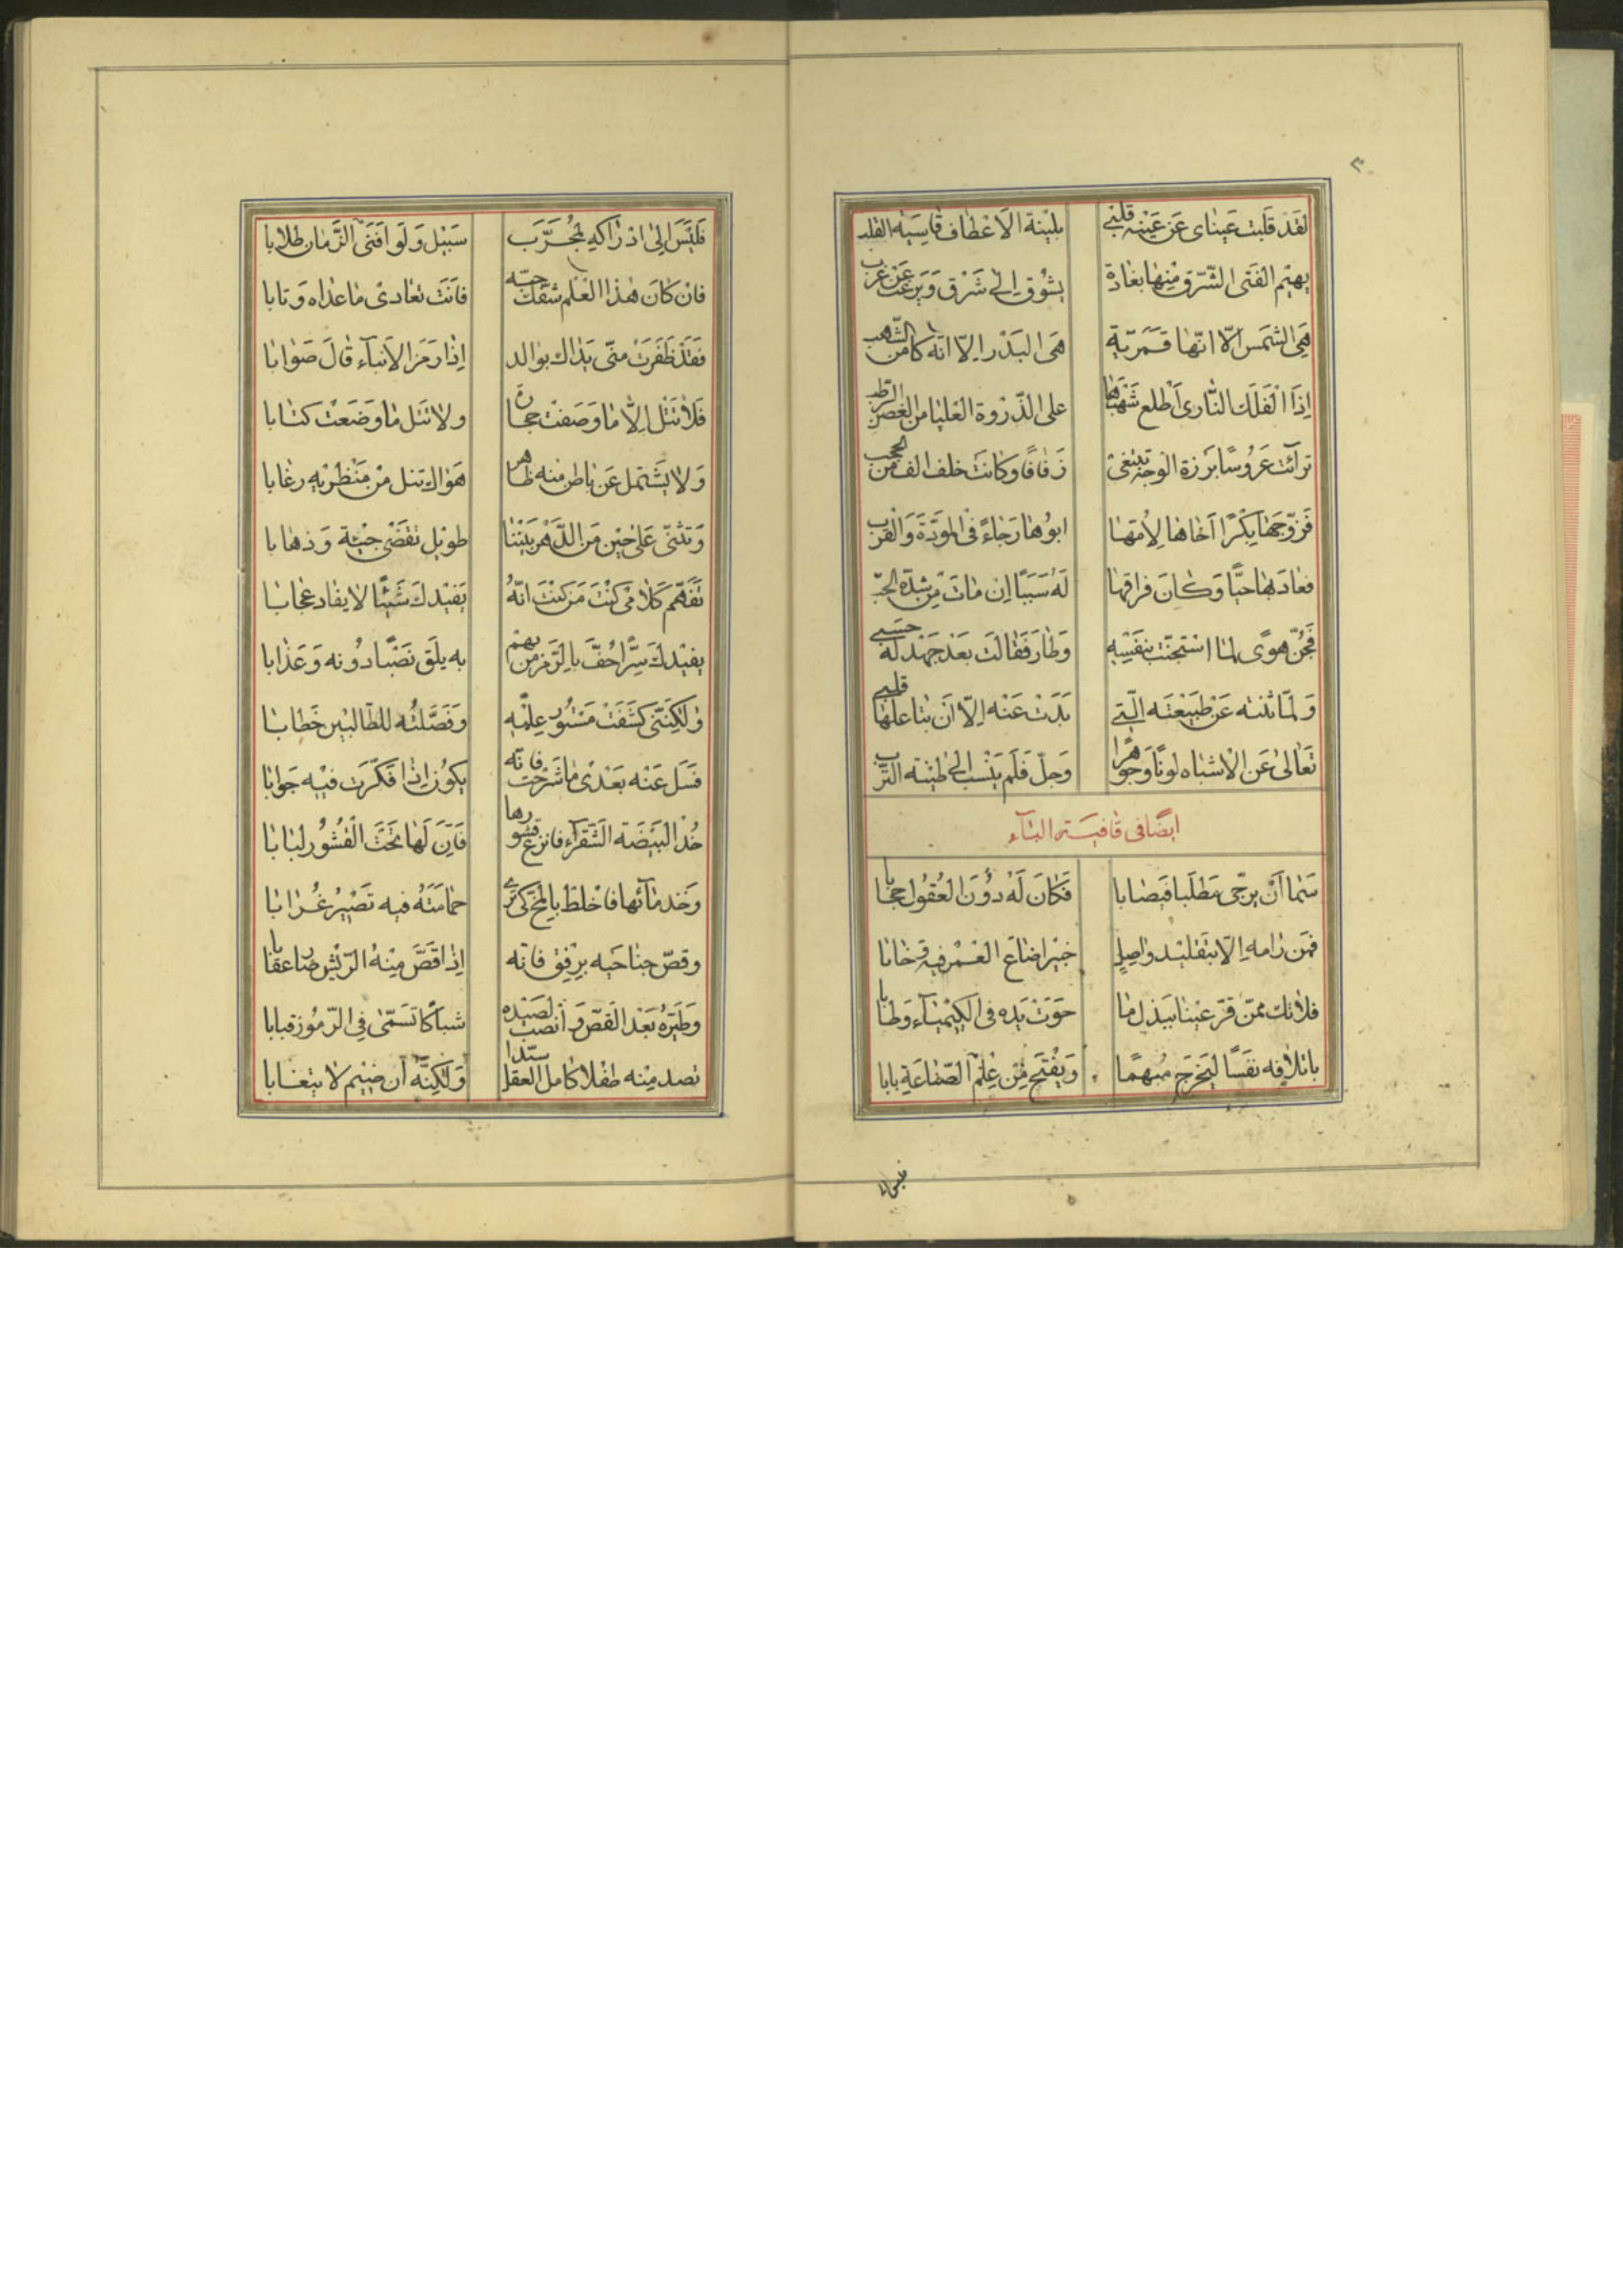 ٣
لَقَد قَلَبت عَيناى عَن عَينِه قَلبى بلينة الاَعطاف قاسية القلب
يهيم الفَتى الشّرقى مِنها بغادة يشوق اِلى شَرق وَيرغب عَن غرب
هِىَ الشَمس اِلّا انّها قَمَريّة هَى البَدر اِلّا انّه كامن الشّهب
اِذَا الفَلَك النّارى اَطلع شُهبَها على الذّروة العليا من الغصن الرّطب
ترآئت عَروسًا بَرزة الوَجه تبتغى زفافًا وكانَت خلف الف من الحجب
فَزوّجَها بِكرًا اَخاها لِاُمّها ابوها رَجاءً فى المَودّة وَالقرب
فعادَ بها حيًّا وَكانَ فراقها لَه سَبَبًا اِن ماتَ مِن شِدّة الحبّ
فَجُنّ هوًى لمّا استجنّت بنَفسِه وَطار فَقالت بَعد جَهد لَه حسبى
وَلمّا ثنته عَن طَبيعَته الّتى بَدَت عَنه اِلّا اَن يتاعلها قلبى
تَعالى عَن الاشباه لونًا وَجَوهرًا وَجلّ فَلَم ينسب الى طينة التّرب
ايضًا فى قافيـة الباء
سَما اَن يرجّى مَطلَبا فيصابا فَكانَ لَه دُونَ العُقُول حجابا
فَمن رامه اِلّا بتقليد واصِل خبير اضاعَ العُمر فيه وَخابا
فلا تك ممّن قرّ عينا ببَذل ما حَوَت يَده فى الكيمياء وَطابا
باتلافه نفَسًا ليَخرج مُبهمًا وَيَفتَح مِن عِلم الصّناعَةِ بابا
فليس ا
فَلَيسَ اِلى ادراكه لمُجَرّب سَبيل وَلَو افنى الزّمان طلابا
فان كانَ هذا العلم شفّك حبّه فاَنت تعادى ما عداه وَتابا
فَقَد ظَفَرت منّى يَداك بوالد اِذا رَمَز الاَنباء قالَ صَوابا
فَلا تَتل اِلّا ما وَصَفت حجارة ولا تتل ما وَضَعت كتابا
وَلا يَشتمل عَن باطن منه ظاهر هَواك تنل مِن مَنظَريه رغابا
وَتثنى عَلى حين مَن الدّهر بَيننا طويل تقضّى جيئة وَذهابا
تَفَهّم كَلامى كُنتَ مَن كنت انّهُ يَفيدك شَيئًا لا يفاد عجابا
يفيدكَ سِرًّا حُفّ بالرّمز من يهم به يلق نَصبًا دُونه وَعَذابا
وَلكِنّنى كشَفت مَستُور علِمه وَفَصّلتُه للطّالبين خَطابا
فَسَل عَنه بَعدى ما شَرحت فانّه يكون اِذا فكّرت فيه جَوابا
خُذ البَيضَة الشّقرآء فانزع قشورها فَاِنّ لَها تحت القُشُور لبابا
وَخذ مآئها فاخلط بالمخ كى ترى حمامَته فيه تَصيرُ غُرابا
وقصّ جناحَيه برِفق فانّه اِذا قَصّ مِنهُ الرّيش صار عقابا
وَطَيّرهُ بَعد القَصّ وَانصب لصَيده شباكًا تَسَمّى فى الرّموز قبابا
تصد مِنه طفلا كامل العقل سيّدا وَلكِنّه اَن ضيم لا يتغابا